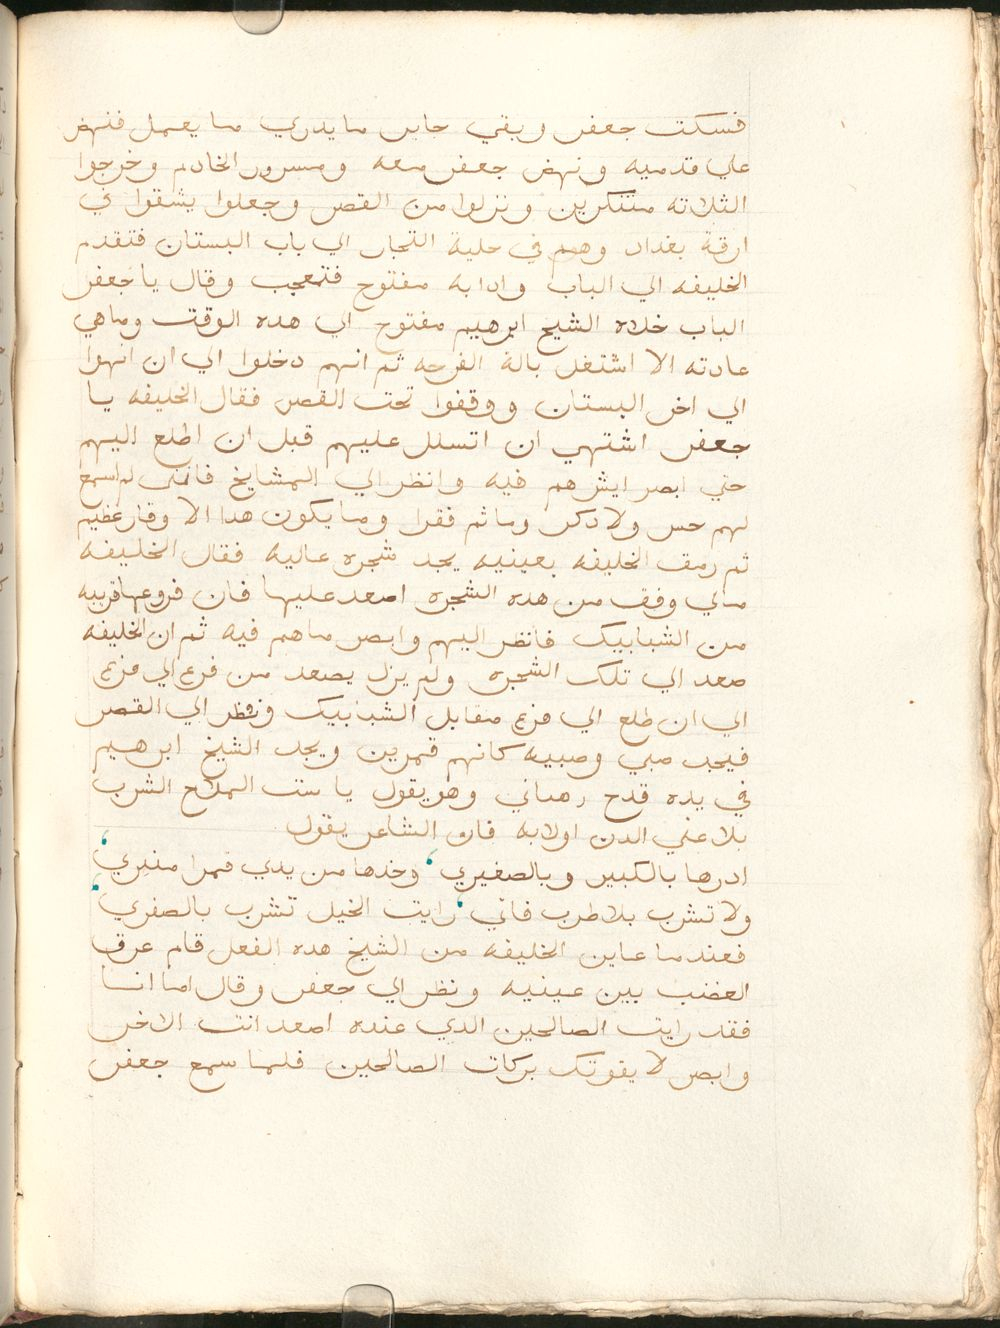 فسكت جعفر وبقي حاير ما يدري ما يعمل فنهض
علي قدميه ونهض جعفر معه ومسرور الخادم وخرجوا
الثلاثه متنكرين ونزلوا من القصر وجعلوا يشقوا في
ازقة بغداد وهم في حلية التجار الي باب البستان فتقدم
الخليفه الي الباب وادا به مفتوح فتعجب وقال يا جعفر
الباب خلاه الشيخ ابرهيم مفتوح الي هده الوقت وما هي
عادته الا اشتغل بالة الفرجه ثم انهم دخلوا الي ان انهوا
الي اخر البستان ووقفوا تحت القصر فقال الخليفه يا
جعفر اشتهي ان اتسلل عليهم قبل ان اطلع اليهم
حتي ابصر ايش هم فيه وانظر الي المشايخ فانني لم اسمع
لهم حس ولا دكر وما ثم فقرا وما يكون هدا الا وقار عظيم
ثم رمق الخليفه بعينيه يجد شجره عاليه فقال الخليفه
مالي وفق من هده الشجره اصعد عليها فان فروعها قريبه
من الشبابيك فانظر اليهم وابصر ما هم فيه ثم ان الخليفه
صعد الي تلك الشجره ولم يزل يصعد من فرع الي فرع
الي ان طلع الي فرع مقابل الشبابيك ونظر الي القصر
فيجد صبي وصبيه كانهم قمرين ويجد الشيخ ابرهيم
في يده قدح وهو يقول يا ست الملاح الشرب
بلا غني الدن اولا به فان الشاعر يقول
ادرها بالكبير وبالصغيري وخدها من يدي قمرا منيري
ولا تشرب بلا طرب فاني رايت الخيل تشرب بالصفري
فعندما عاين الخليفه من الشيخ هده الفعل قام عرق
الغضب بين عينيه ونظر الي جعفر وقال اما انا
فقد رايت الصالحين الدي عنده اصعد انت الاخر
وابصر لا يفوتك بركات الصالحين فلما سمع جعفر